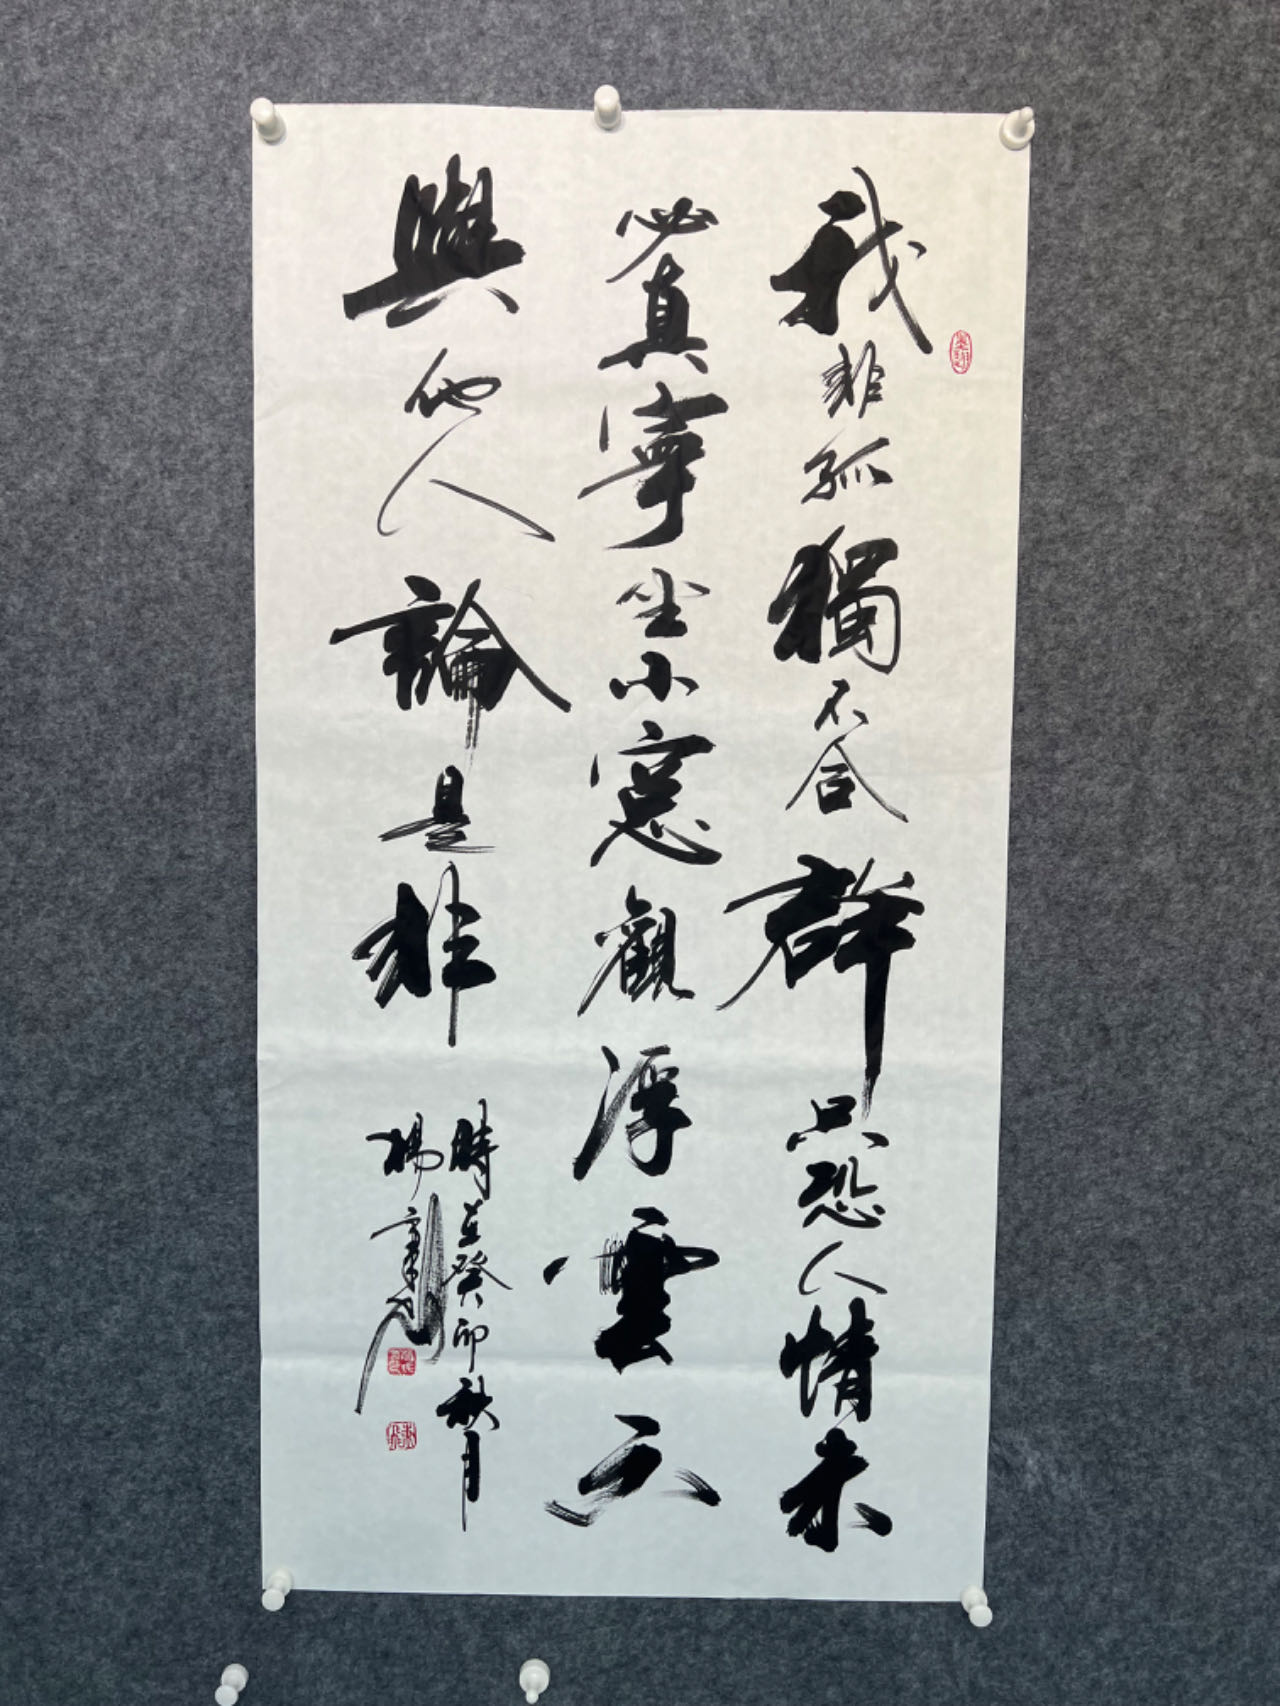 我非孤獨不合群只恐人情未
必真寧坐小窓觀浮雲不
與他人論是非
時在癸卯秋月
楊